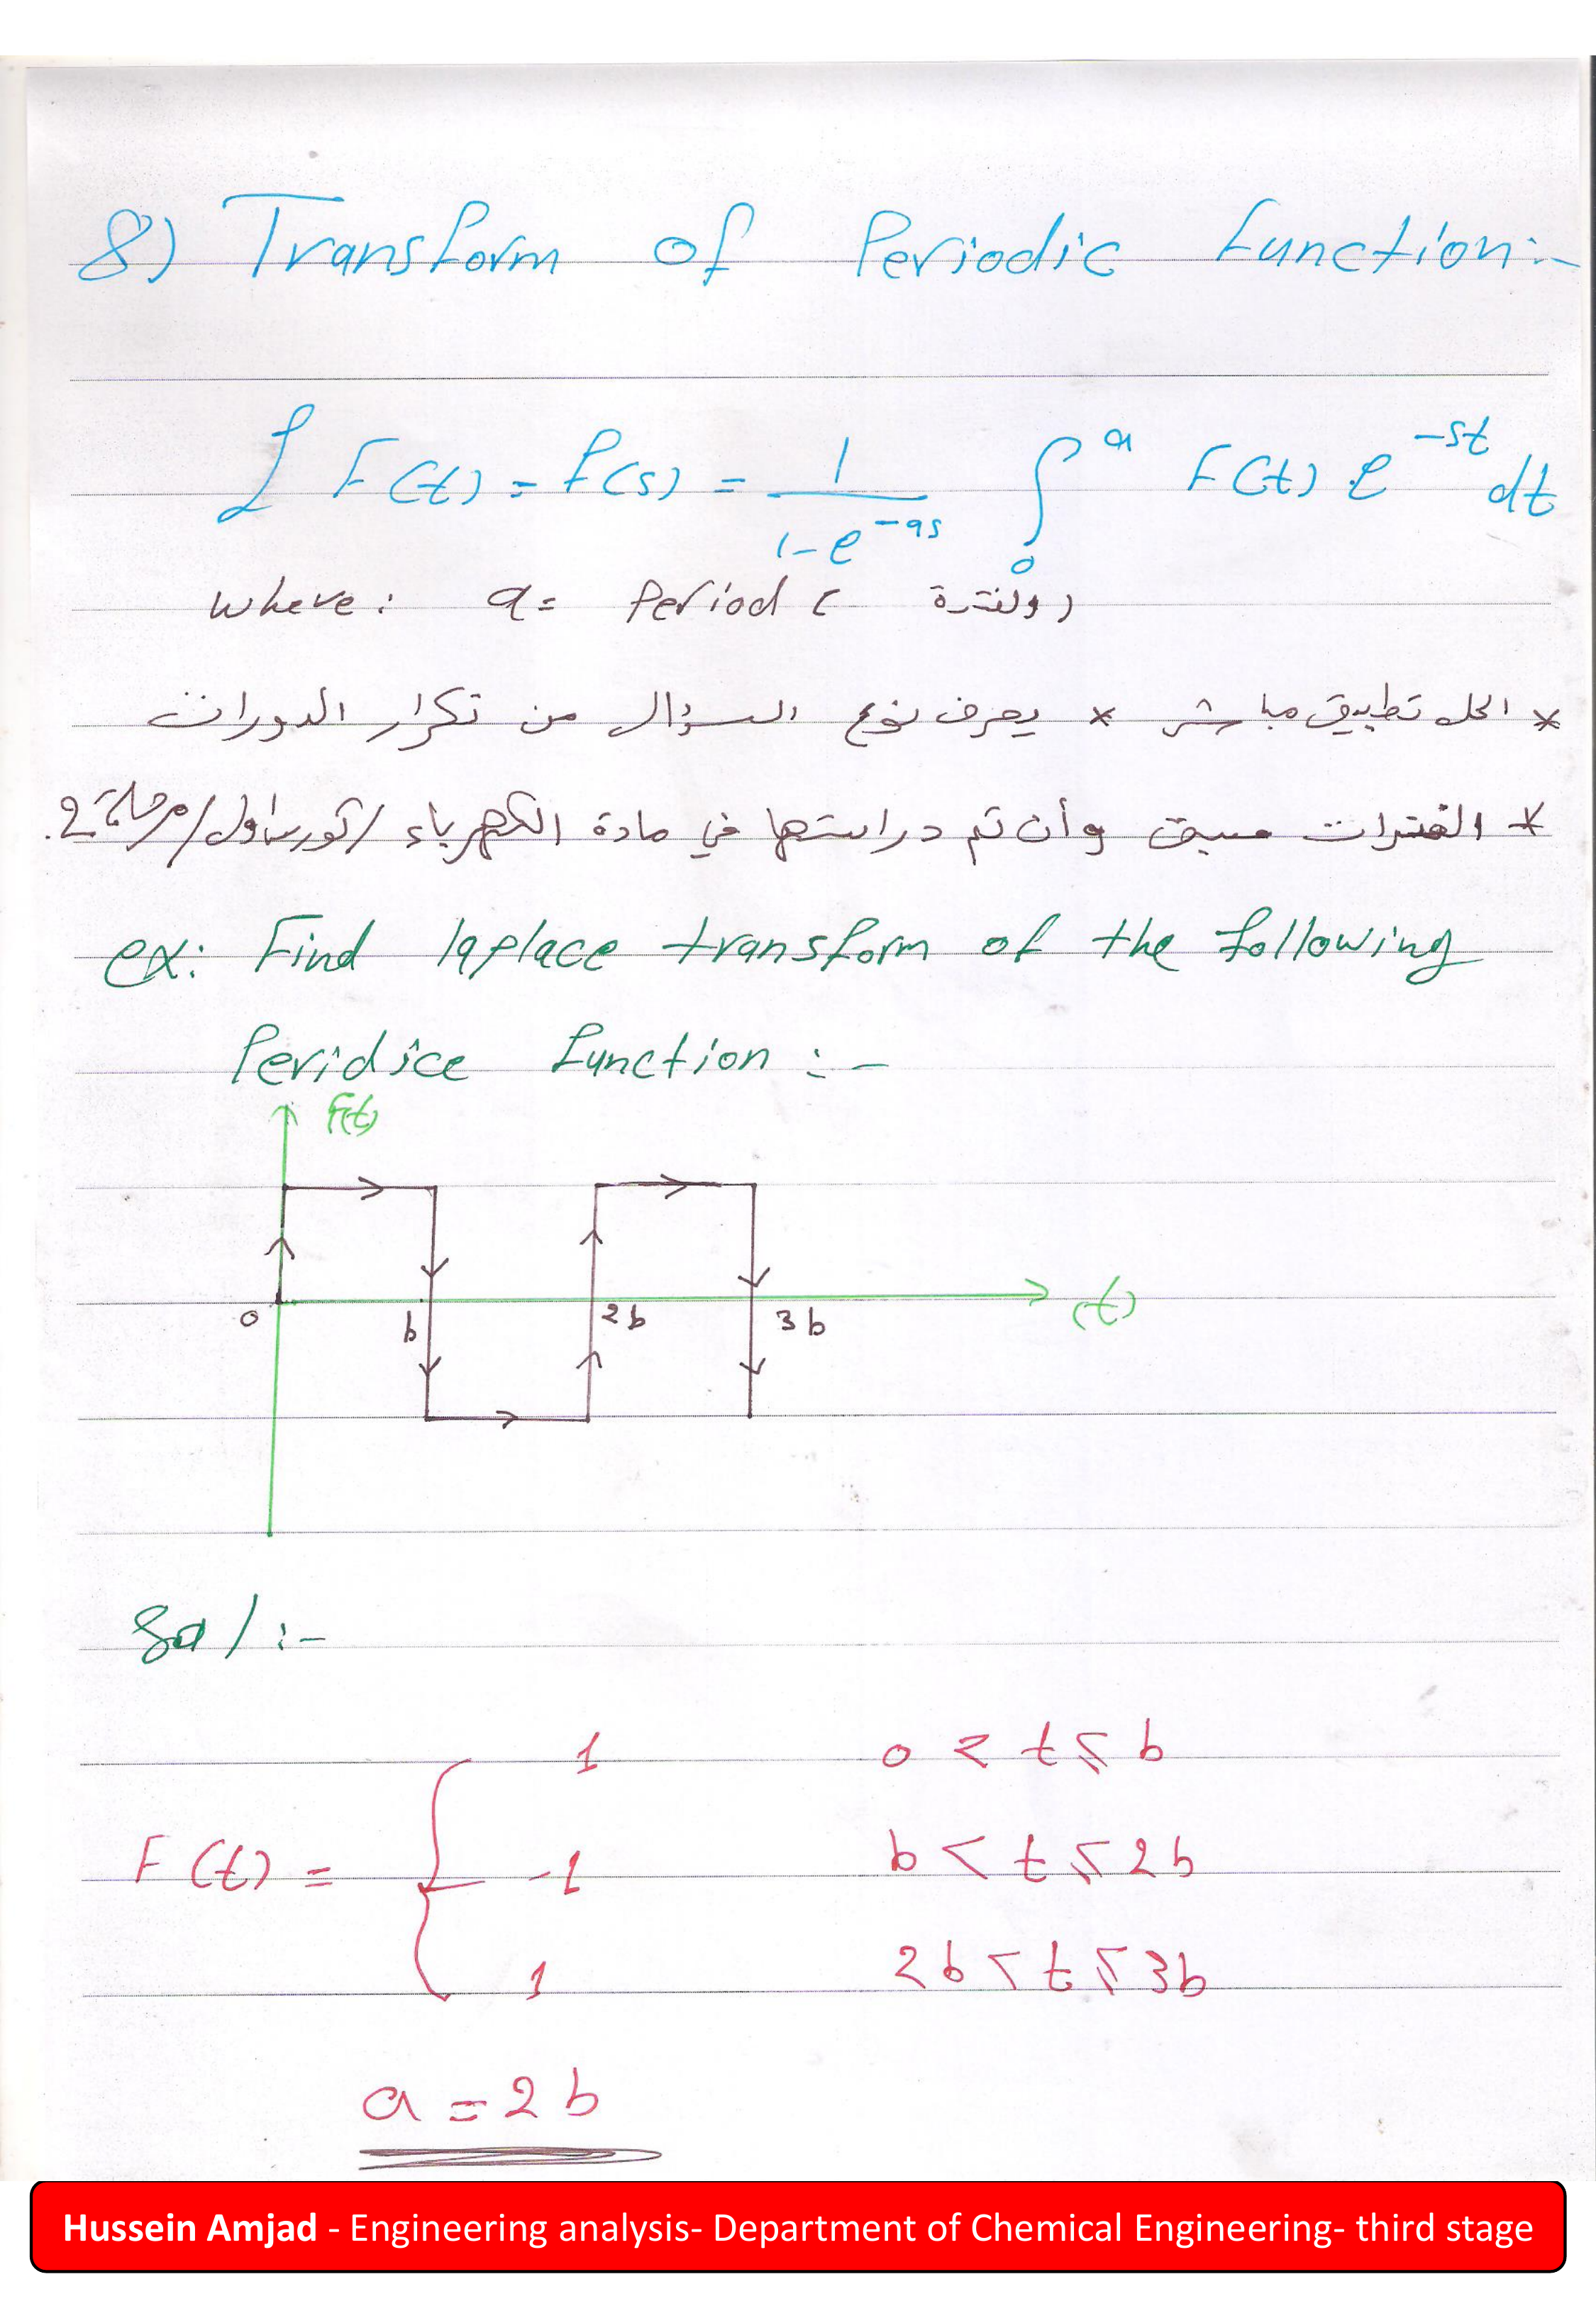 8) Transform of Periodic function:-
ℒ F(t) = f(s) = 1/(1-e^-as) ∫_0^a F(t) e^-st dt
where: a = Period (الفترة)
* الحل تطبيق مباشر * يعرف نوع السؤال من تكرار الدورات
* الفترات سبق وأن تم دراستها في مادة الكهرباء / كورس اول / مرحلة 2.
ex: Find laplace transform of the following
Peridice function :-
F(t)
0 b 2b 3b (t)
Sol :-
F(t) = { 1 0 < t ≤ b
-1 b < t ≤ 2b
1 2b < t ≤ 3b
a = 2b
Hussein Amjad - Engineering analysis- Department of Chemical Engineering- third stage